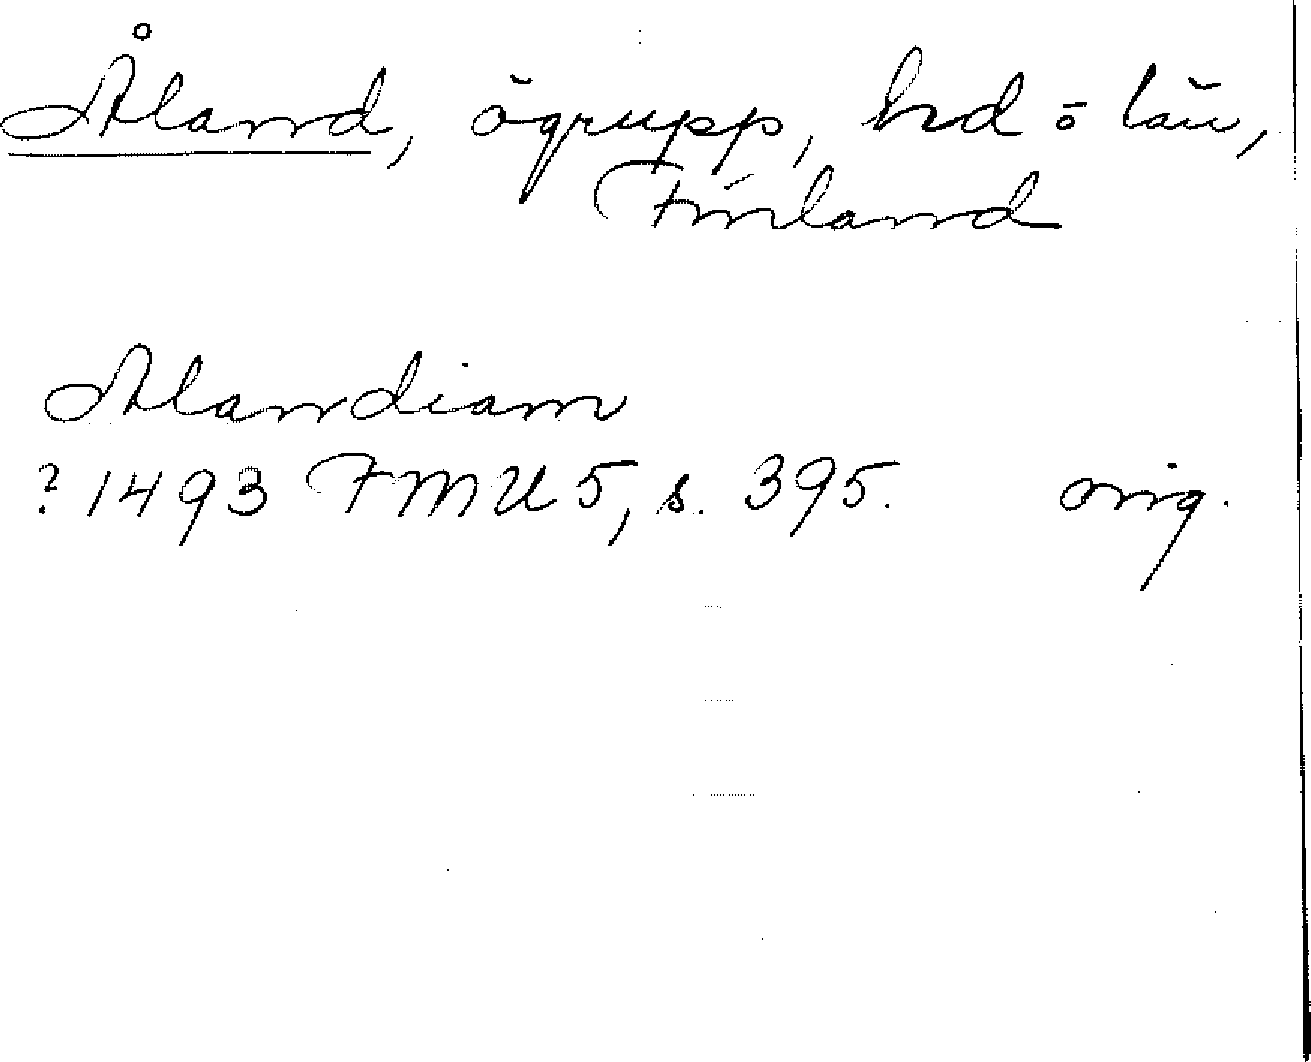 Åland, ögrupp, hd ö län,
Finland
Alandiam
? 1493 FMU 5, s. 395. orig.